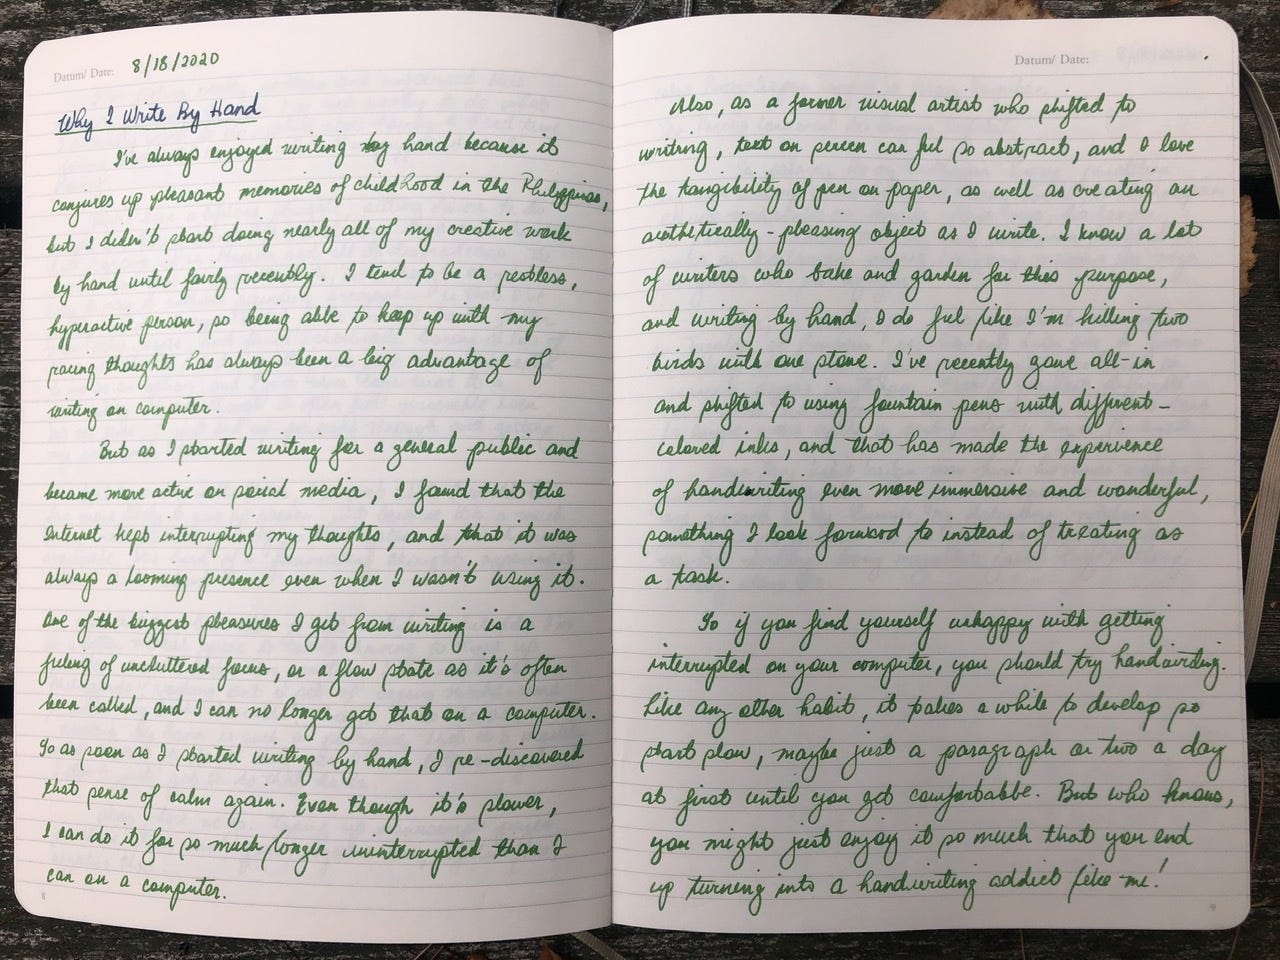 Datum/ Date: 8/18/2020
Why I Write By Hand
I've always enjoyed writing by hand because it
conjures up pleasant memories of childhood in the Philippines,
but I didn't start doing nearly all of my creative work
by hand until fairly recently. I tend to be a restless,
hyperactive person, so being able to keep up with my
racing thoughts has always been a big advantage of
writing on computer.
But as I started writing for a general public and
became more active on social media, I found that the
Internet kept interrupting my thoughts, and that it was
always a looming presence even when I wasn't using it.
One of the biggest pleasures I get from writing is a
feeling of uncluttered focus, or a flow state as it's often
been called, and I can no longer get that on a computer.
So as soon as I started writing by hand, I re-discovered
that sense of calm again. Even though it's slower,
I can do it for so much longer uninterrupted than I
can on a computer.
8
Datum/ Date:
Also, as a former visual artist who shifted to
writing, text on screen can feel so abstract, and I love
the tangibility of pen on paper, as well as creating an
aesthetically-pleasing object as I write. I know a lot
of writers who bake and garden for this purpose,
and writing by hand, I do feel like I'm killing two
birds with one stone. I've recently gone all-in
and shifted to using fountain pens with different-
colored inks, and that has made the experience
of handwriting even more immersive and wonderful,
something I look forward to instead of treating as
a task.
So if you find yourself unhappy with getting
interrupted on your computer, you should try handwriting.
Like any other habit, it takes a while to develop so
start slow, maybe just a paragraph or two a day
at first until you get comfortable. But who knows,
you might just enjoy it so much that you end
up turning into a handwriting addict like me!
9